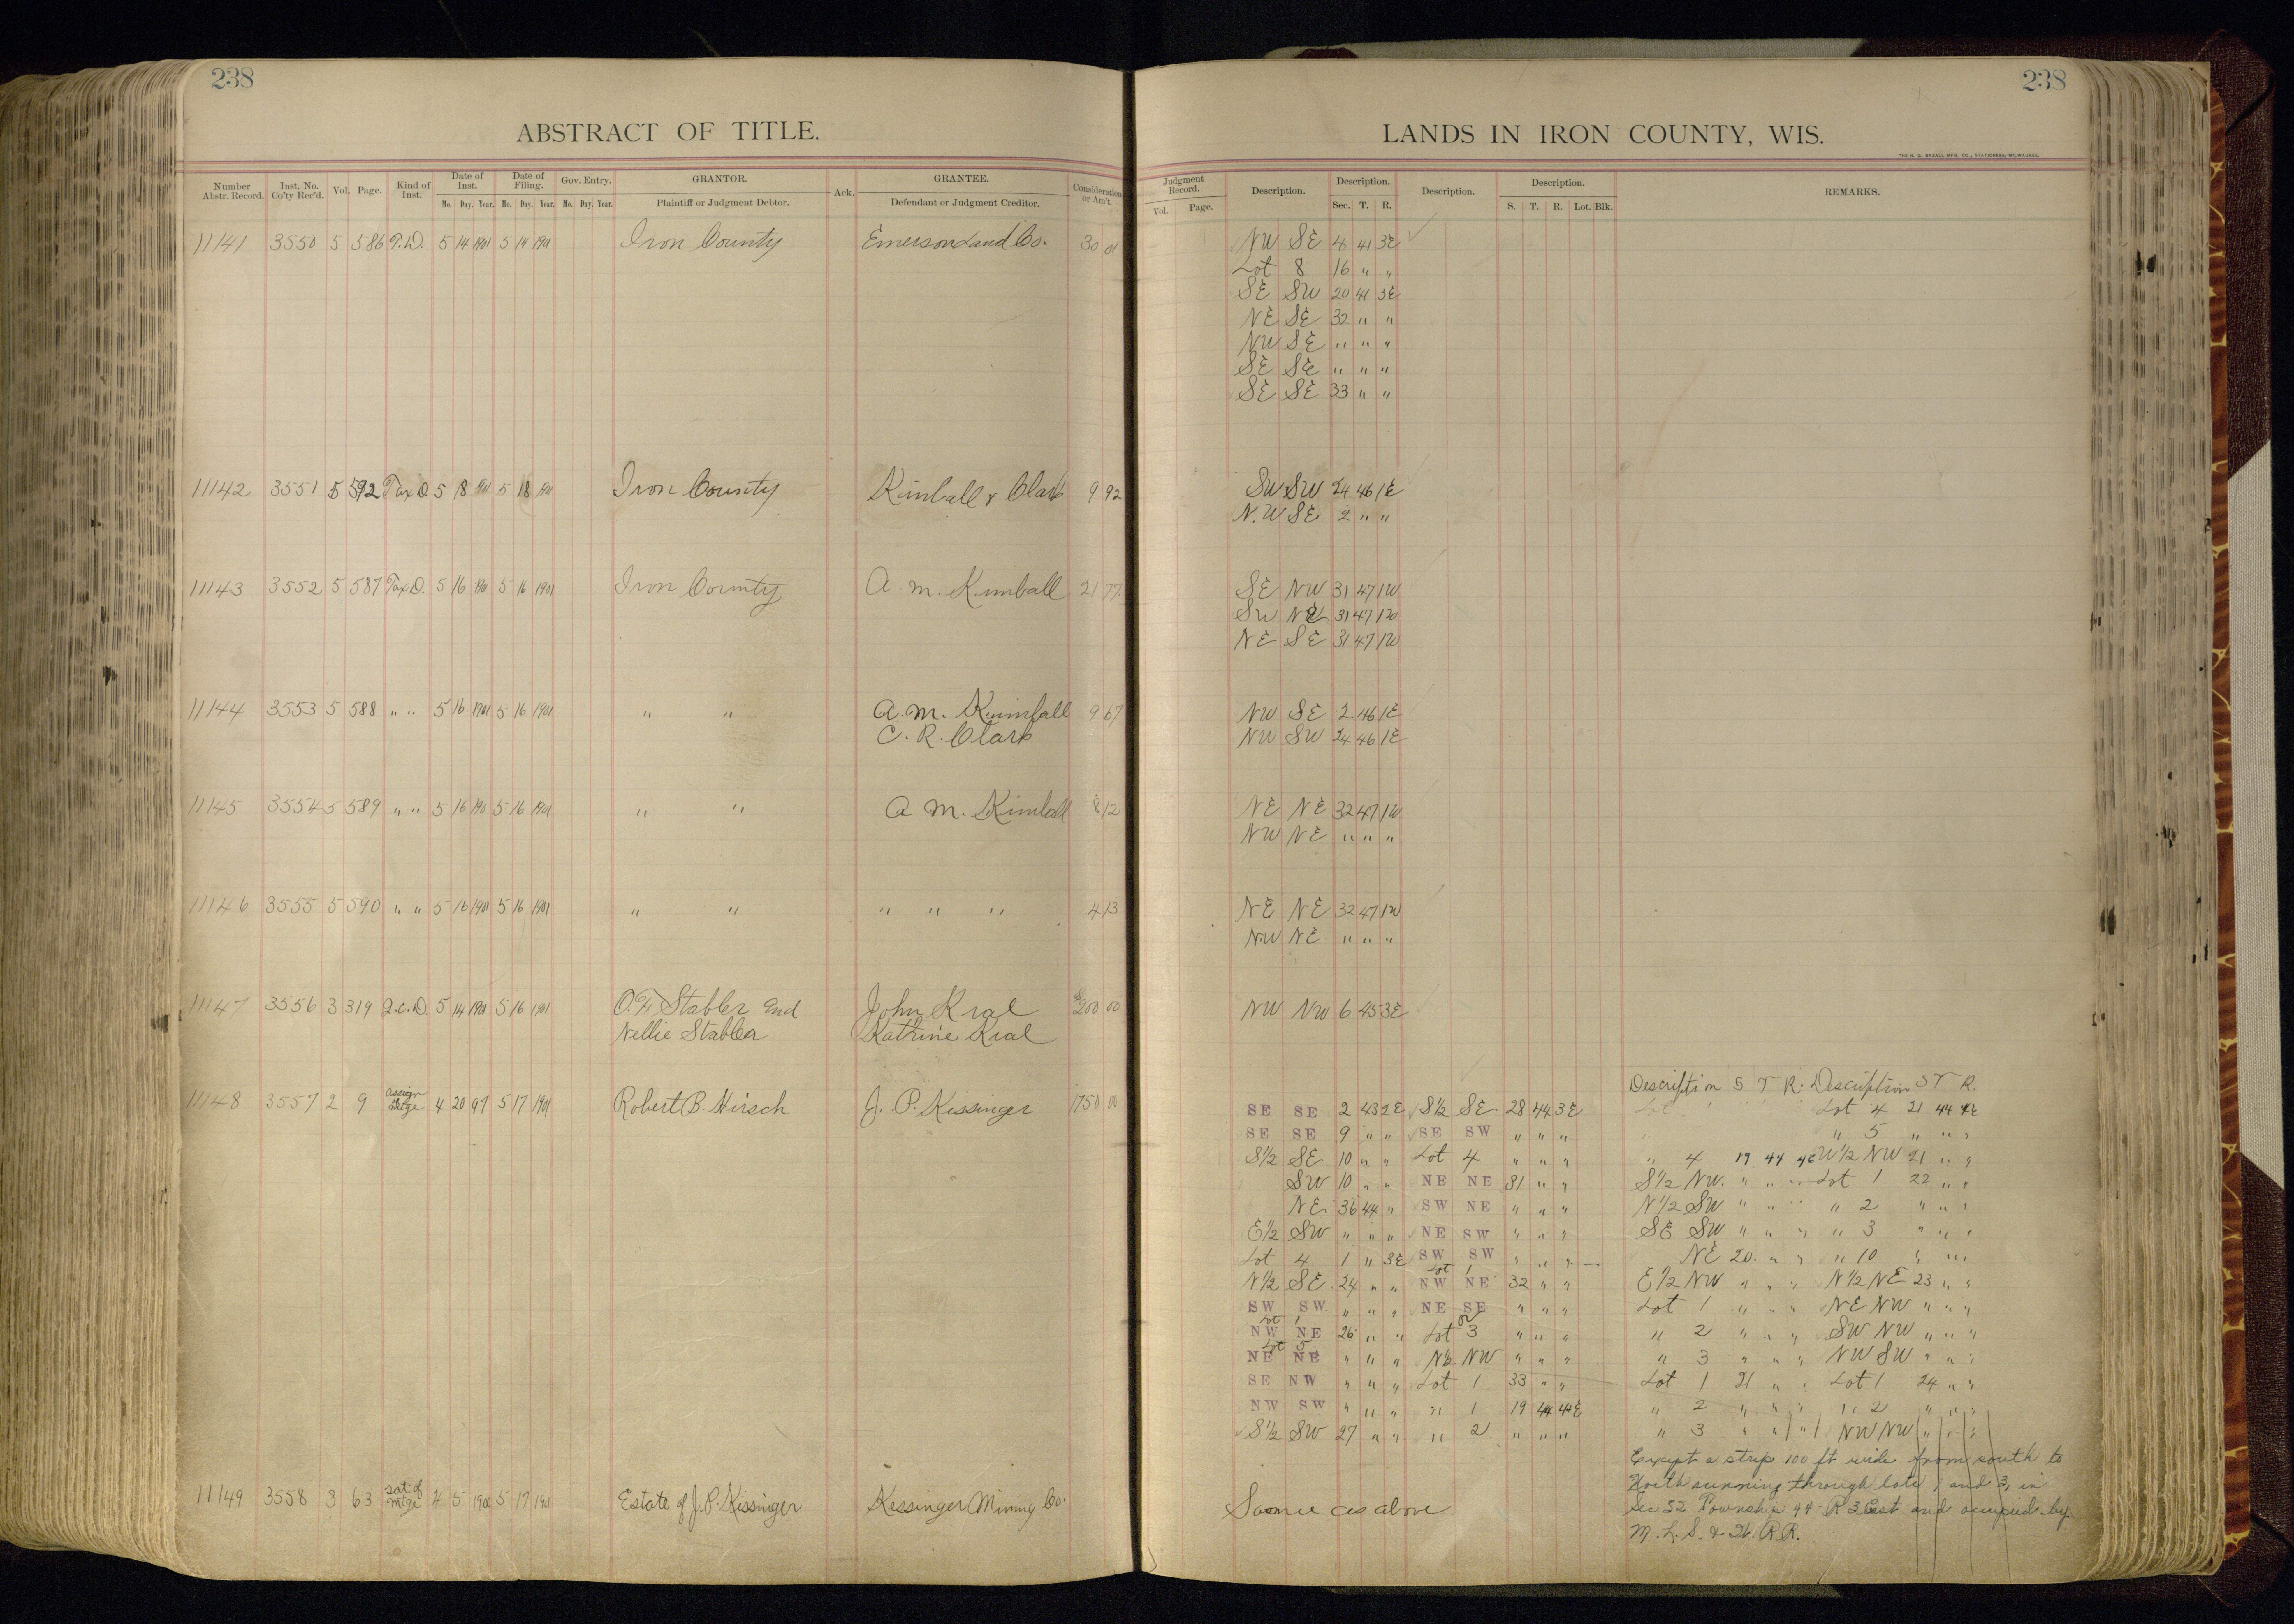 238
ABSTRACT OF TITLE.
Number Abstr. Record. Inst. No. Co'ty Rec'd. Vol. Page. Kind of Inst. Date of Inst. Date of Filing. Gov. Entry. GRANTOR. Ack. GRANTEE. Consideration or Am't.
Mo. Day. Year. Mo. Day. Year. Mo. Day. Year. Plaintiff or Judgment Debtor. Defendant or Judgment Creditor.
11141 3550 5 586 T.D. 5 14 1901 5 14 1901 Iron County Emerson Land Co. 30 01
11142 3551 5 592 Tax D 5 18 1901 5 18 1901 Iron County Kimball & Clark 9 92
11143 3552 5 587 Tax D. 5 16 1901 5 16 1901 Iron County A. M. Kimball 21 77
11144 3553 5 588 " " 5 16 1901 5 16 1901 " " A. M. Kimball 9 67
C. R. Clark
11145 3554 5 589 " " 5 16 1901 5 16 1901 " " A M. Kimball 8 12
11146 3555 5 590 " " 5 16 1901 5 16 1901 " " " " " 4 13
11147 3556 3 319 Q.C.D. 5 14 1901 5 16 1901 O. F. Stabler and John Kral $200 00
Nellie Stabler Kathrine Kral
11148 3557 2 9 Assign of Mtge 4 20 97 5 17 1901 Robert B. Hirsch J. P. Kissinger 1750 00
11149 3558 3 63 Sat of Mtge 4 5 1901 5 17 1901 Estate of J. P. Kissinger Kessinger Mining Co.
238
LANDS IN IRON COUNTY, WIS.
Judgment Record. Description. Description. Description. Description. REMARKS.
Vol. Page. Sec. T. R. S. T. R. Lot. Blk.
NW SE 4 41 3E
Lot 8 16 " "
SE SW 20 41 3E
NE SE 32 " "
NW SE " " "
SE SE " " "
SE SE 33 " "
SW SW 24 46 1E
N.W SE 2 " "
SE NW 31 47 1W
SW NE 31 47 1W
NE SE 31 47 1W
NW SE 2 46 1E
NW SW 24 46 1E
NE NE 32 47 1W
NW NE " " "
NE NE 32 47 1W
NW NE " " "
NW NW 6 45 3E
Description S T R. Description S T R.
SE SE 2 43 2E S½ SE 28 44 3E Lot 4 21 44 4E
SE SE 9 " " SE SW " " " " 5 " " "
S½ SE 10 " " Lot 4 " " " " 4 19 44 4E W½ NW 21 " "
SW 10 " " NE NE 31 " " S½ NW. " " " Lot 1 22 " "
NE 36 44 " SW NE " " " N½ SW " " " " 2 " " "
E½ SW " " " NE SW " " " SE SW " " " " 3 " " "
Lot 4 1 " 3E SW SW " " " NE 20 " " " 10 " " "
Lot 1
N½ SE 24 " " NW NE 32 " " E½ NW " " " N½ NE 23 " "
SW SW " " " NE SE " " " Lot 1 " " " NE NW " " "
Lot 1 or
NW NE 26 " " Lot 3 " " " " 2 " " " SW NW " " "
Lot 5
NE NE " " " N½ NW " " " " 3 " " " NW SW " " "
SE NW " " " Lot 1 33 " " Lot 1 21 " " Lot 1 24 " "
NW SW " " " " 1 19 44 4E " 2 " " " " 2 " " "
S½ SW 27 " " " 2 " " " " 3 " " " NW NW " " "
Except a strip 100 ft wide from south to
North running through lots 1 and 3, in
Sec 32 Township 44 - R 3 East and occupied by
M. L. S. & W. R.R.
Same as above